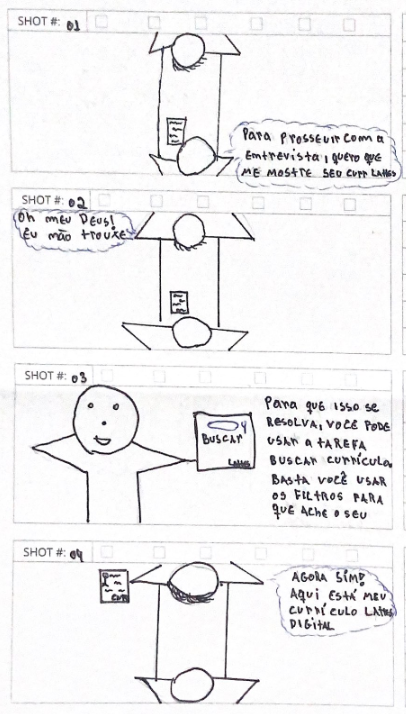 SHOT #: 01
Para Prosseuir com a
Entrevista, quero que
me mostre seu curr Lattes
SHOT #: 02
Oh meu Deus!
Eu não trouxe
SHOT #: 03
Para que isso se
resolva, você pode
usar a tarefa
buscar currículo,
basta você usar
os filtros para
que ache o seu
Buscar
Lattes
SHOT #: 04
Agora simp
Aqui está meu
currículo Lattes
digital